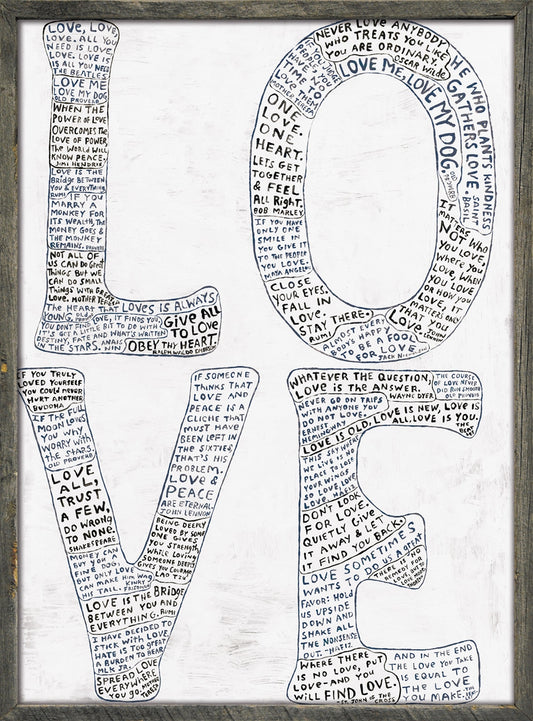 LOVE, LOVE,
LOVE. ALL YOU
NEED IS LOVE,
LOVE. LOVE IS
IS ALL YOU NEED
THE BEATLES
LOVE ME
LOVE MY DOG
OLD PROVERB
WHEN THE
POWER OF LOVE
OVERCOMES THE
LOVE OF POWER,
THE WORLD WILL
KNOW PEACE.
JIMI HENDRIX
LOVE IS THE
BRIDGE BETWEEN
YOU & EVERYTHING.
RUMI
IF YOU
MARRY A
MONKEY FOR
ITS WEALTH, THE
MONEY GOES &
THE MONKEY
REMAINS. PROVERB
NOT ALL OF
US CAN DO GREAT
THINGS BUT WE
CAN DO SMALL
THINGS WITH GREAT
LOVE. MOTHER TERESA
THE HEART THAT LOVES IS ALWAYS
YOUNG
YOU DON'T FIND LOVE, IT FINDS YOU.
IT'S GOT A LITTLE BIT TO DO WITH
DESTINY, FATE AND WHAT'S WRITTEN
IN THE STARS. ANAIS NIN
GIVE ALL
TO LOVE
OBEY THY HEART.
RALPH WALDO EMERSON
NEVER LOVE ANYBODY
WHO TREATS YOU LIKE
YOU ARE ORDINARY.
OSCAR WILDE
HE WHO PLANTS KINDNESS
GATHERS LOVE. SAINT BASIL
LOVE ME, LOVE MY DOG.
OLD PROVERB
IF YOU JUDGE
PEOPLE, YOU
HAVE NO
TIME TO
LOVE THEM
MOTHER TERESA
ONE
LOVE.
ONE
HEART.
LET'S GET
TOGETHER
& FEEL
ALL RIGHT.
BOB MARLEY
IF YOU HAVE
ONLY ONE
SMILE IN
YOU GIVE IT
TO THE PEOPLE
YOU LOVE.
MAYA ANGELOU
CLOSE
YOUR EYES.
FALL IN
LOVE,
STAY THERE.
RUMI
ALMOST EVERY
BODY'S HAPPY
TO BE A FOOL
FOR LOVE
JACK NICHOLSON
IT
MATTERS
NOT WHO
YOU LOVE,
WHERE YOU
LOVE, WHEN
YOU LOVE
OR HOW YOU
LOVE, IT
MATTERS ONLY
THAT YOU
LOVE.
JOHN LENNON
IF YOU TRULY
LOVED YOURSELF
YOU COULD NEVER
HURT ANOTHER
BUDDHA
IF THE FULL
MOON LOVES
YOU WHY
WORRY WITH
THE STARS.
OLD PROVERB
LOVE
ALL,
TRUST
A FEW,
DO WRONG
TO NONE.
SHAKESPEARE
MONEY CAN
BUY YOU A
FINE DOG,
BUT ONLY LOVE
CAN MAKE HIM WAG
HIS TAIL. KINKY FRIEDMAN
LOVE IS THE BRIDGE
BETWEEN YOU AND
EVERYTHING. RUMI
I HAVE DECIDED TO
STICK WITH LOVE.
HATE IS TOO GREAT
A BURDEN TO BEAR
MLK JR.
SPREAD LOVE
EVERYWHERE
YOU GO. MOTHER TERESA
IF SOMEONE
THINKS THAT
LOVE AND
PEACE IS A
CLICHE THAT
MUST HAVE
BEEN LEFT IN
THE SIXTIES,
THAT'S HIS
PROBLEM.
LOVE &
PEACE
ARE ETERNAL.
JOHN LENNON
BEING DEEPLY
LOVED BY SOME
ONE GIVES
YOU STRENGTH,
WHILE LOVING
SOMEONE DEEPLY
GIVES YOU COURAGE
LAO TZU
WHATEVER THE QUESTION,
LOVE IS THE ANSWER.
WAYNE DYER
THE COURSE
OF LOVE NEVER
DID RUN SMOOTH
OLD PROVERB
NEVER GO ON TRIPS
WITH ANYONE YOU
DO NOT LOVE.
ERNEST
HEMINGWAY
LOVE IS OLD, LOVE IS NEW, LOVE IS
ALL. LOVE IS YOU.
THE BEATLES
THIS SKY WHERE
WE LIVE IS NO
PLACE TO LOSE
YOUR WINGS
SO LOVE, LOVE,
LOVE. HAFIZ
DON'T LOOK
FOR LOVE.
QUIETLY GIVE
IT AWAY & LET
IT FIND YOU BACK.
LOVE SOMETIMES
WANTS TO DO US A GREAT
FAVOR: HOLD
US UPSIDE
DOWN AND
SHAKE ALL
THE NONSENSE
OUT. -HAFIZ-
THERE IS NO
REMEDY FOR
LOVE BUT TO
LOVE MORE
THOREAU
WHERE THERE
IS NO LOVE, PUT
LOVE-AND YOU
WILL FIND LOVE.
-ST. JOHN OF THE CROSS
AND IN THE END
THE LOVE YOU TAKE
IS EQUAL TO
THE LOVE
YOU MAKE.